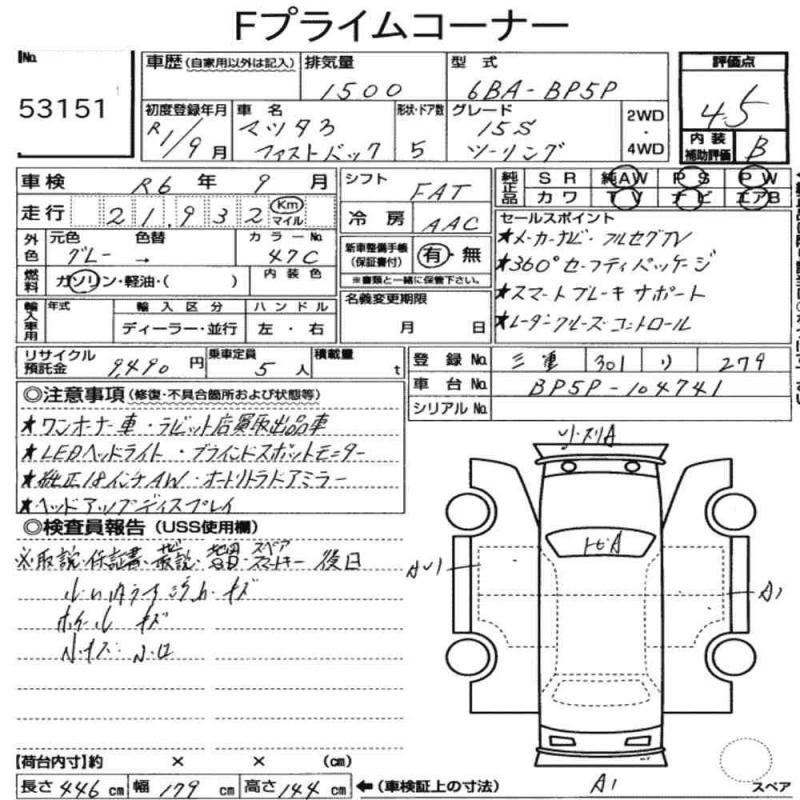 Fプライムコーナー
No.
53151
車歴 (自家用以外は記入)
排気量
1500
型式
6BA-BP5P
評価点
4.5
内装
補助評価
B
初度登録年月
R1/9月
車名
マツダ3
ファストバック
形状・ドア数
5
グレード
15S
ツーリング
2WD
・
4WD
車検 R6年 9月
走行 21,932 Km マイル
外色 元色 色替 カラーNo.
グレー → 47C
燃料 ガソリン・軽油・( ) 内装色
輸入車用 年式 輸入区分 ハンドル
ディーラー・並行 左・右
シフト FAT
冷房 AAC
新車整備手帳
(保証書付)
有・無
※書類と一緒に保管下さい。
名義変更期限
月 日
純正品 SR 純AW PS PW
カワ TV ナビ エアB
セールスポイント
★メーカーナビ・フルセグTV
★360°セーフティパッケージ
★スマートブレーキサポート
★レーダークルーズコントロール
リサイクル
預託金
9490円
乗車定員 5人
積載量 t
登録No. 三重 301 り 279
車台No. BP5P-104741
シリアルNo.
◎注意事項 (修復・不具合箇所および状態等)
★ワンオーナー車・ラビット店買取出品車
★LEDヘッドライト・ブラインドスポットモニター
★純正18インチAW・オートリトラドアミラー
★ヘッドアップディスプレイ
◎検査員報告 (USS使用欄)
※取説・保証書・ スペア 後日
ホイール キズ
リップスリA
トビA
AU1
A1
A1
【荷台内寸】約 × × (cm)
長さ 446 cm 幅 179 cm 高さ 144 cm
← (車検証上の寸法)
スペア